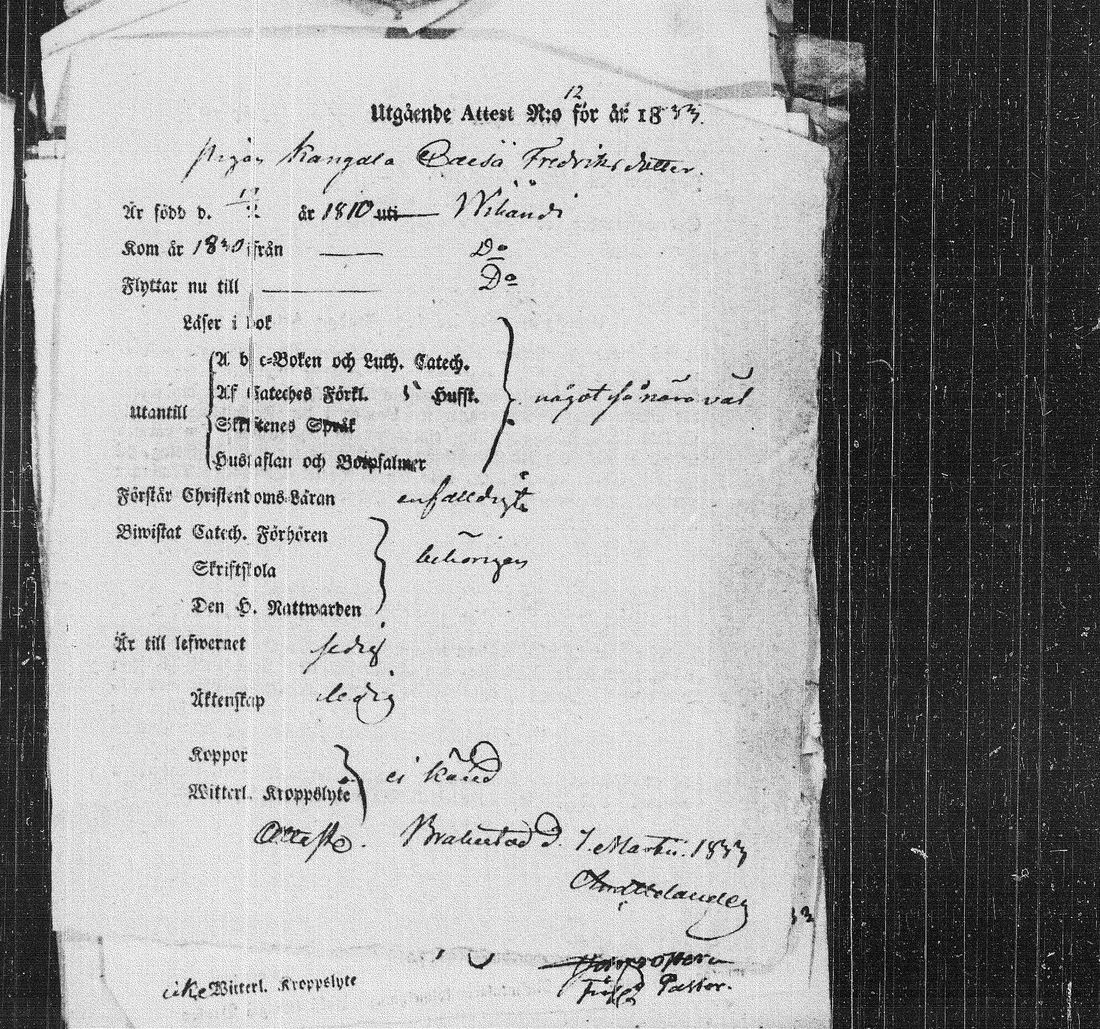 Utgående Attest N:o 12 för år 1833.
Pigan Kangala Caisa Fredriks dotter.
Är född d. år 1810 uti Wihandi
Kom år 1830 ifrån Do
Flyttar nu till Do
Läser i bok
A b c=Boken och Luth. Catech.
Af Cateches Förkl. Hufst. något så nära väl
Utantill
Skriftenes Språk
Hustaflan och Botpsalmer
Förstår Christendoms Läran enfalldigt
Biwistat Catech. Förhören
behörigen
Skriftskola
Den H. Nattwarden
Är till lefwernet sedig
Äktenskap ledig
Koppor
ei känd
Witterl. Kroppslyte
Attest. Brahestad d. 7 Martii. 1833
33
icke Witterl. Kroppslyte
Pastor.